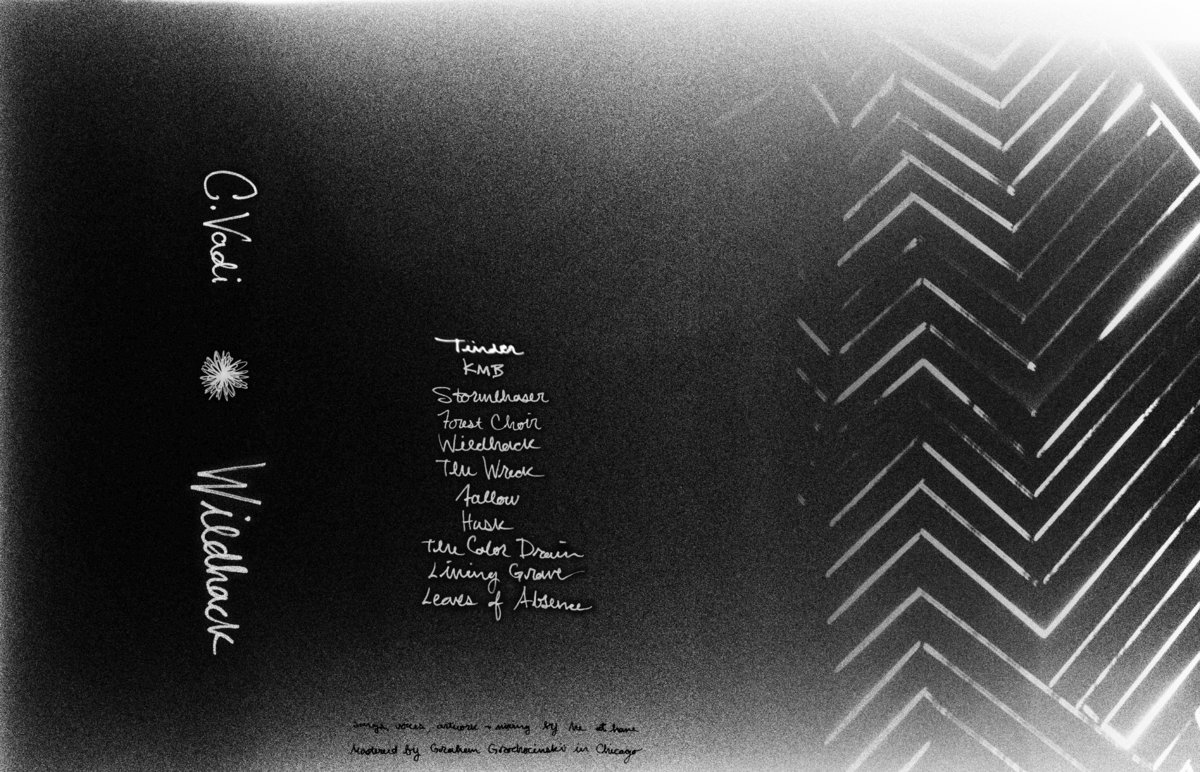 C. Vadi
Wildhack
Tinder
KMB
Stormchaser
Forest Choir
Wildhack
The Wreck
Fallow
Husk
The Color Drain
Living Grave
Leaves of Absence
Songs, voices, artwork + mixing by me at home
Mastered by Graham Grochocinski in Chicago